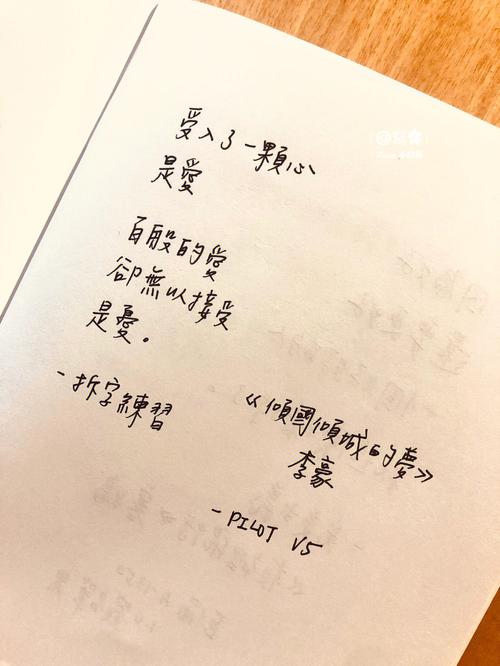 受入了一顆心
是愛
百般的愛
卻無以接受
是憂。
-折字練習
《傾國傾城的夢》
李豪
-PILOT V5